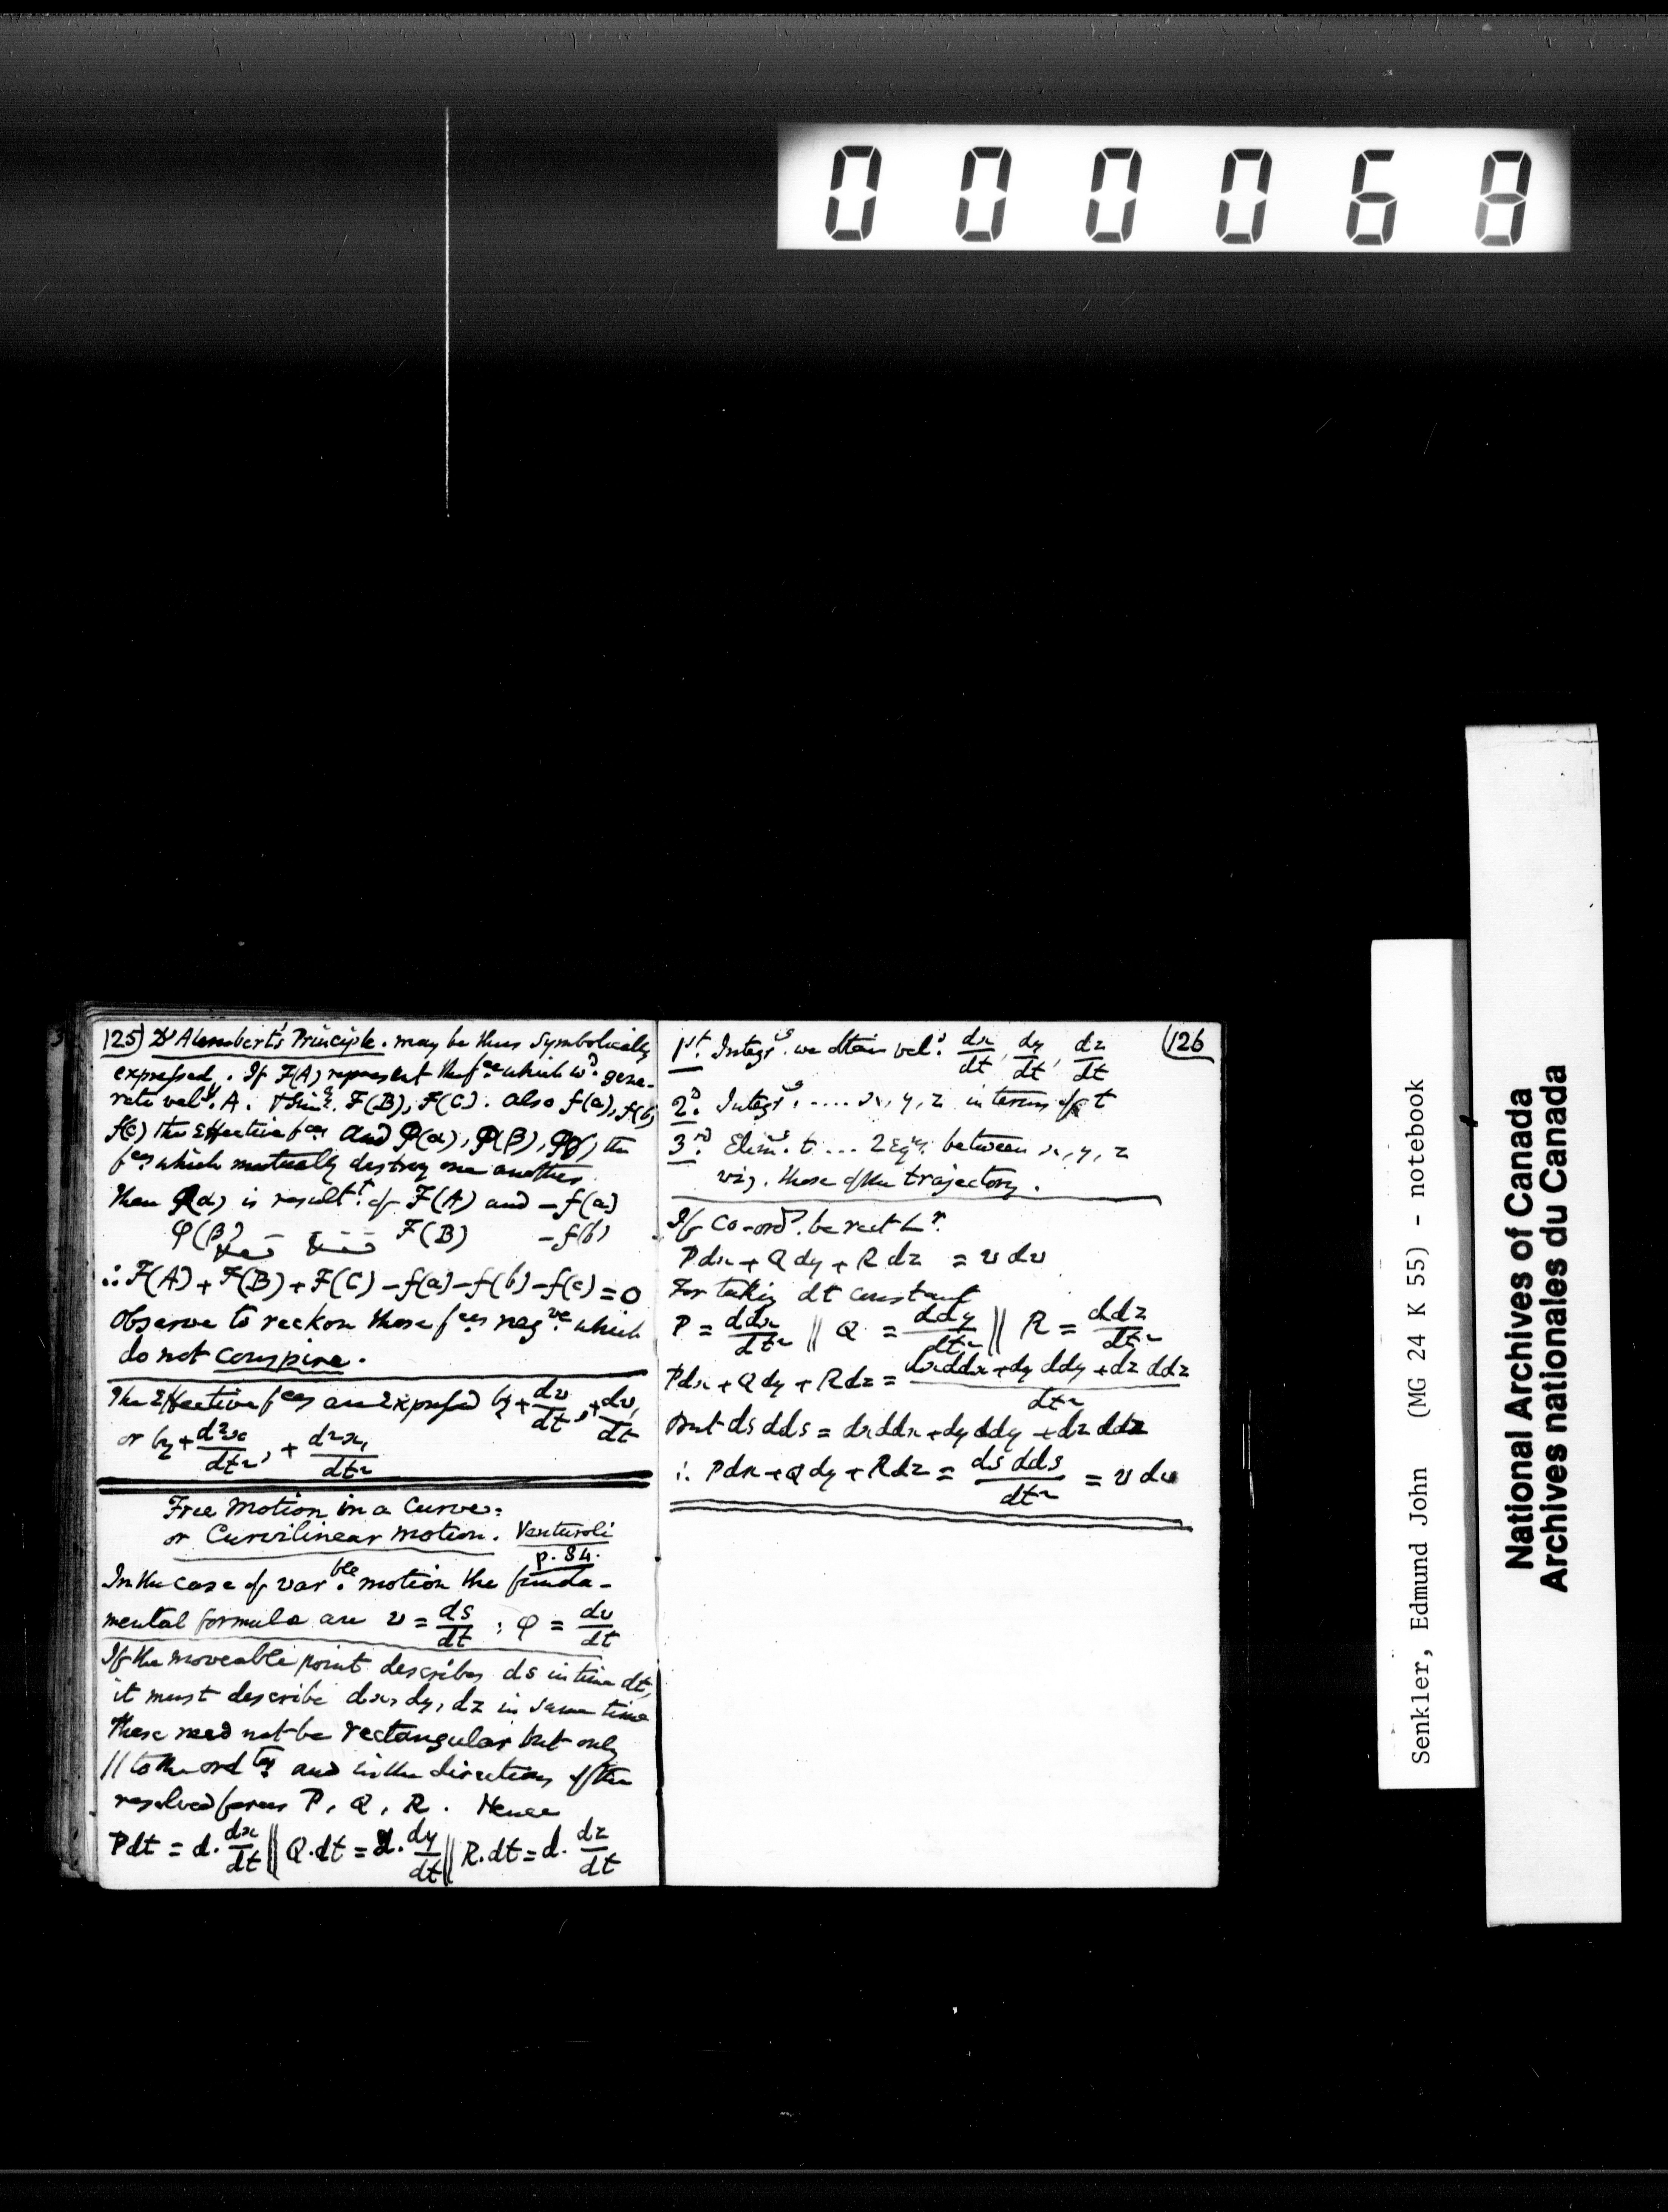 000068
125) D'Alembert's Principle. may be thus Symbolically
expressed. If F(A) represent the fce which wd. gene-
rate vely. A. & Simr. F(B), F(C). also f(a), f(b)
f(c) the Effective fces And φ(α), φ(β), φ(γ) the
fces which mutually destroy one another.
Then φ(α) is resultt. of F(A) and -f(a)
φ(β) F(B) -f(b)
∴ F(A) + F(B) + F(C) - f(a) - f(b) - f(c) = 0
Observe to reckon those fces negve. which
do not conspire.
The Effective fces are Expressed by + dv/dt, + dv,/dt
or by + d²x/dt², + d²x,/dt²
Free Motion in a Curve:
or Curvilinear Motion. Venturoli
p. 84.
In the case of varble. motion the funda-
mental formula are v = ds/dt : φ = dv/dt
If the moveable point describes ds in time dt,
it must describe dx, dy, dz in same time
These need not be rectangular but only
// to the ordtes and in the directions of the
resolved forces P, Q, R. Hence
Pdt = d. dx/dt || Q.dt = d. dy/dt || R.dt = d. dz/dt
(126
1st. Integrg. we obtain vels. dx/dt, dy/dt, dz/dt
2d. Integrg. .... x, y, z in terms of t
3rd. Elimg. t ... 2 Eqns. between x, y, z
viz. those of the trajectory.
If Co-ords. be rect Lr.
Pdx + Qdy + Rdz = v dv
For taking dt constant
P = ddx/dt² || Q = ddy/dt² || R = ddz/dt²
Pdx + Qdy + Rdz = dxddx + dy ddy + dz ddz/dt²
But ds dds = dxddx + dyddy + dz ddz
∴ Pdx + Qdy + Rdz = ds dds/dt² = v dv
Senkler, Edmund John (MG 24 K 55) - notebook
National Archives of Canada
Archives nationales du Canada